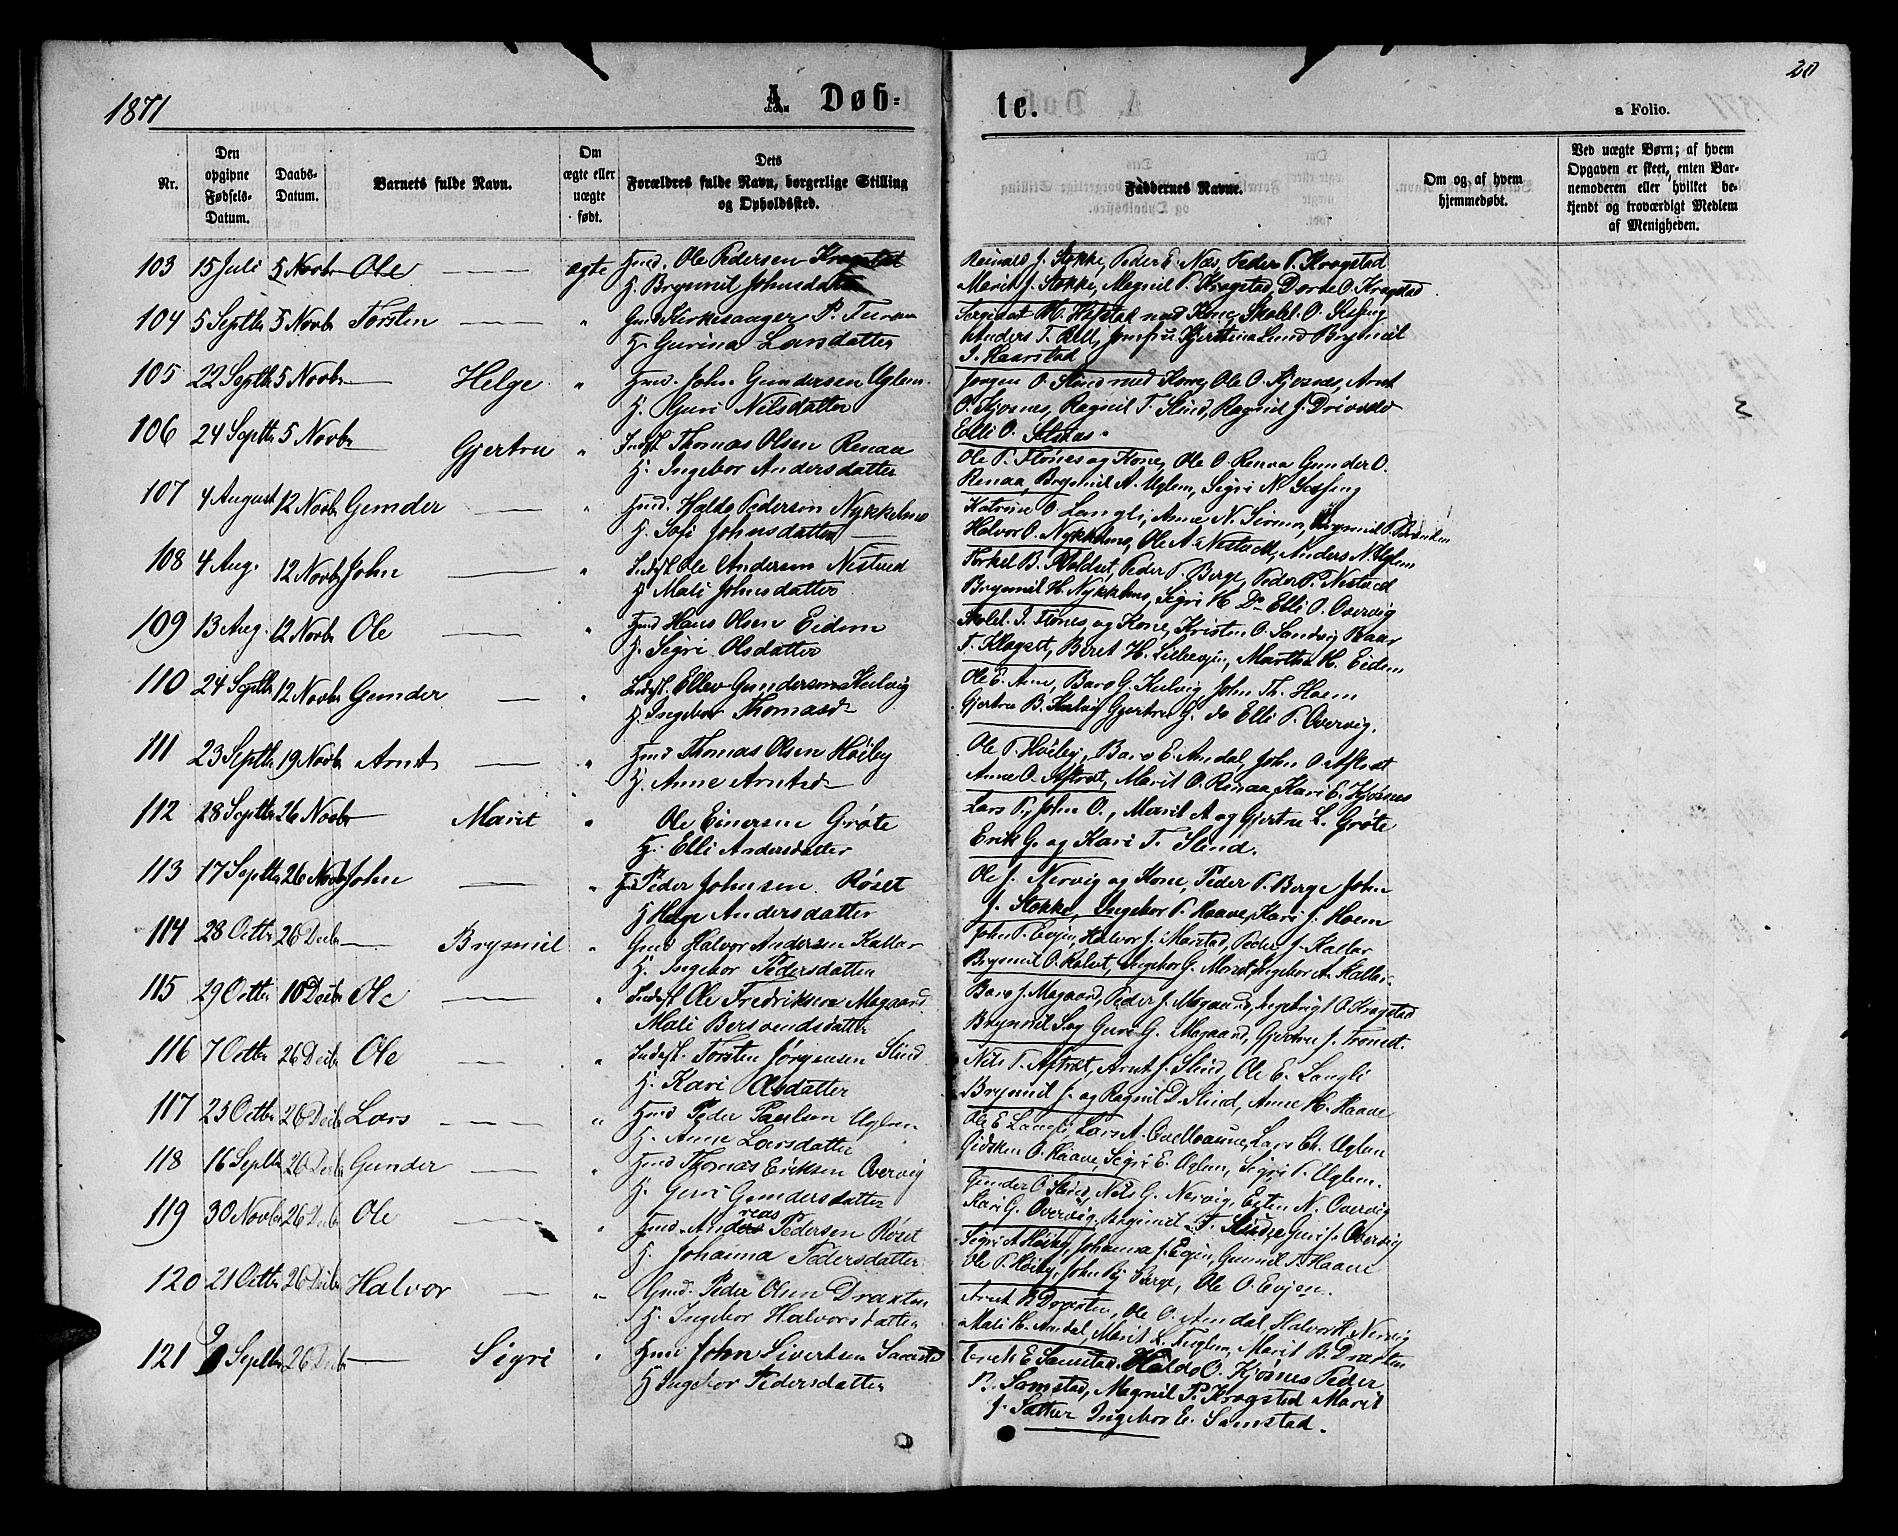 1871
A. Døb-
te.
20
a Folio.
Nr.
Den opgivne Fødsels-Datum.
Daabs-Datum.
Barnets fulde Navn.
Om ægte eller uægte født.
Dets Forældres fulde Navn, borgerlige Stilling og Opholdssted.
Faddernes Navne.
Om og af hvem hjemmedøbt.
Ved uægte Børn; af hvem Opgaven er skeet, enten Barnemoderen eller hvilket bekjendt og troværdigt Medlem af Menigheden.
103 15 Juli 5 Novbr Ole ægte Gmd. Ole Pedersen Kragstad
H. Brynnil Johnsdatter
J. Stokke, Peder E. Næs, Peder P. Kragstad
Marit J. Stokke, Magnil P. Kragstad, Dorte O. Kragstad
104 5 Septbr 5 Novbr Torsten " Gmd Kirkesanger P.
H. Gurina Larsdatter
Sergeant med Kone, Skolel. O. Sesseng
Anders T. Jomfru Lund Brynnil
J. Haarstad
105 22 Septbr 5 Novbr Helge " Gmd. John Gundersen Uglem
H. Guri Nilsdatter
Jørgen O. Slind med Kone, Ole O. Kjøsnes, Arnt
O. Kjøsnes, Ragnil T. Slind, Ragnil J.
Elli O.
106 24 Septbr 5 Novbr Gjertru " Indst. Thomas Olsen Renaa
H. Ingebor Andersdatter
Ole P. Flønes og Kone, Ole O. Renaa Gunder O.
Renaa, Brynnil A. Uglem, Sigri N. Sesseng
107 4 August 12 Novbr Gunder " Gmd. Haldo Pedersen Nykkelmo
H. Sofi Johnsdatter
O. Langli, Anne N.
Halvor O. Nykkelmo, Ole A. Nestvedt, Anders N. Uglem
108 4 Aug. 12 Novbr John " Indst Ole Andersen Nestved
H Mali Johnsdatter
Torkel B. Peder P. Berge, Peder P. Nestved
Brynnil H. Nykkelmo, Sigri H. Do Elli O. Overvig
109 13 Aug. 12 Novbr Ole " Gmd Hans Olsen Eidem
H. Sigri Olsdatter
Skolel. J. Flønes, og Kone, Kristen O. Sandvig Baar
T. Klogset, Beret H. Lillevjen, Martha H. Eidem
110 24 Septbr 12 Novbr Gunder " Indst. Ellev Gundersen Kulvig
H. Ingebor Thomasd
Ole E. Aune, Baro G. Kulvig, John Th. Hoem
Gjertru B. Kulvig Gjertru G. do Elli P. Overvig.
111 23 Septbr 19 Novbr Arnt " Gmd Thomas Olsen Høiby
H. Anne Arntsd
Ole T. Høiby, Baro E. Amdal, John O. Aftret
Anne O. Aftret, Marit O. Renaa, Kari E. Kjøsnes
112 28 Septbr 26 Novbr Marit " Ole Einersen Grøte
H. Elli Andersdatter
Lars P, John O., Marit A og Gjertru L. Grøte
Erik G. og Kari T. Slind.
113 17 Septbr 26 Novbr John " Gmd Peder Johnsen Røset
H Helge Andersdatter
Ole J. Nervig og Kone, Peder P. Berge John
J. Stokke, Ingebor P. Haave, Kari J. Hoem
114 28 Octbr 26 Decbr Brynnil " Gmd Halvor Andersen Kallar
H. Ingebor Pedersdatter
John P. Evjen, Halvor J. Marstad, Peder J. Kallar
Brynnil O. Ingebor G. Ingebor A. Kallar.
115 29 Octbr 10 Decbr Ole " Indst Ole Fredriksen Mogaard
Mali Bersvendsdatter
Baro J. Mogaard, Peder J. Mogaard, Ingebrigt O. Kragstad
Brynnil Guri G. Mogaard, Gjertru J. Tronset.
116 7 Octbr 26 Decbr Ole " Indst. Torsten Jørgensen Slind
H. Kari Olsdatter
Nils T. Aftret, Arnt J. Slind, Ole E. Langli
Brynnil J. og Ragnil D. Slind, Anne H. Haave
117 25 Octbr 26 Decbr Lars " Gmd Peder Paulsen Uglem
H. Anne Larsdatter
Ole E Langli, Lars A. Lars Ch. Uglem
Gidsken O. Haave, Sigri E. Uglem, Sigri P. Uglem.
118 16 Septbr 26 Decbr Gunder " Gmd Thomas Eriksen Overvig
H. Guri Gundersdatter
Gunder O. Slind, Nils G. Nervig, Esten N. Overvig
Kari G. Overvig, Brynnil T. Guri J. Overvig
119 30 Novbr 26 Decbr Ole " Gmd. Andreas Pedersen Røset
H. Johanna Pedersdatter
Sigri A Høiby, Johanna J. Evjen, Gunnil T. Haave
Ole P. Høiby, John Ole O. Evjen.
120 21 Octbr 26 Decbr Halvor " Gmd. Peder Olsen Draxten
H. Ingebor Halvorsdatter
Arnt B Draxten, Ole O. Amdal, Halvor H. Nervig
Mali H. Amdal, Marit L. Fuglem, Marit B. Draxten
121 9 Septbr 26 Decbr Sigri " Gmd John Sivertsen
H Ingebor Pedersdatter
Erik E Samstad. Haldo O. Kjøsnes Peder
P. Samstad, Magnil P. Kragstad Marit
J. Sæther Ingebor E. Samstad.